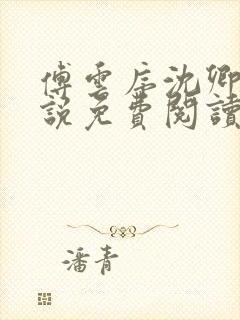 傅雲辰沈卿
說免費閱讀
潘青